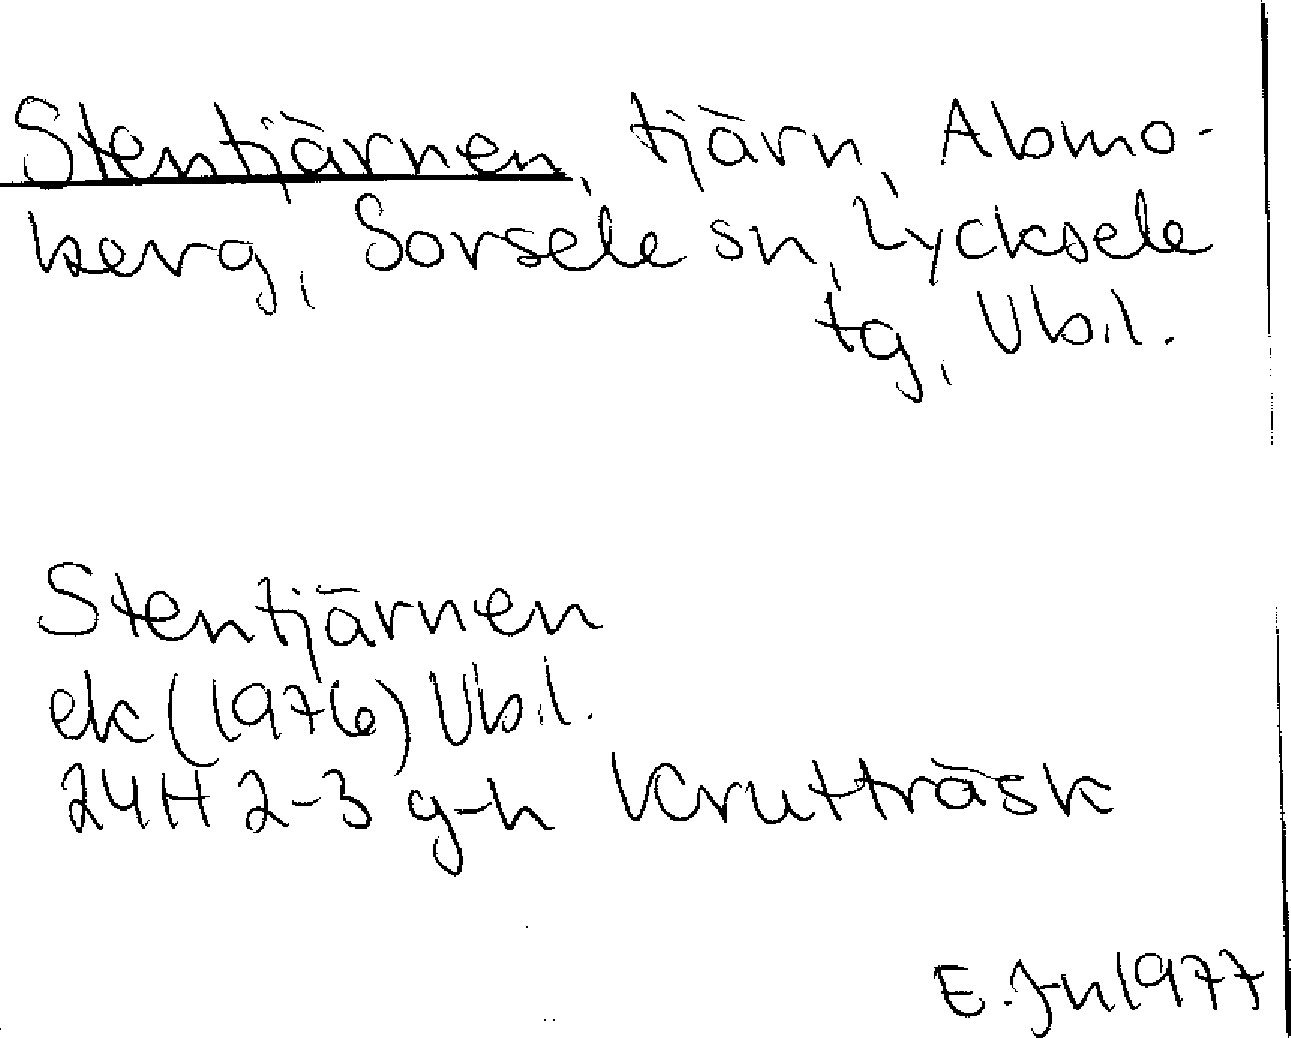 Stentjärnen, tjärn, Abmo-
berg, Sorsele sn, Lycksele
tg, Vb.l.
Stentjärnen
ek (1976) Vb.l.
24H 2-3 g-h Krutträsk
E. Jn 1977